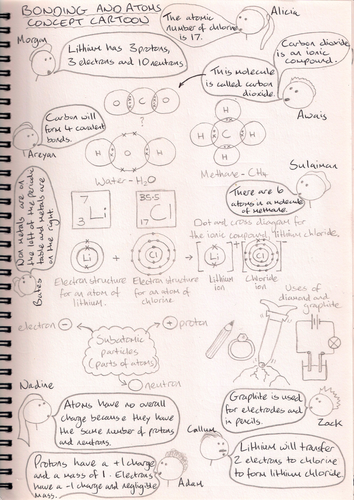 BONDING AND ATOMS
CONCEPT CARTOON
The atomic
number of chlorine
is 17.
Alicia
Morgan
Lithium has 3 protons,
3 electrons and 10 neutrons
Carbon dioxide
is an ionic
compound.
Awais
This molecule
is called carbon
dioxide.
O C O
?
Carbon will
form 4 covalent
bonds.
Areyan
H O H
Water - H2O
H
H C H
H
Methane - CH4
Sulaiman
There are 6
atoms in a molecule
of methane.
Non metals are on
the left of the periodic
table and metals are
on the right.
7
Li
3
35.5
Cl
17
Dot and cross diagram for
the ionic compound, lithium chloride.
Li + Cl → Li Cl
Electron structure
for an atom of
lithium.
Electron structure
for an atom of
chlorine.
Lithium
ion
Chloride
ion
electron −
+ proton
Subatomic
particles
(parts of atoms)
neutron
Uses of
diamond and
graphite.
Nadine
Atoms have no overall
charge because they have
the same number of protons
and neutrons.
Graphite is used
for electrodes and
in pencils.
Zack
Callum
Protons have a +1 charge
and a mass of 1. Electrons
have a -1 charge and negligible
mass.
Adam
Lithium will transfer
2 electrons to chlorine
to form lithium chloride